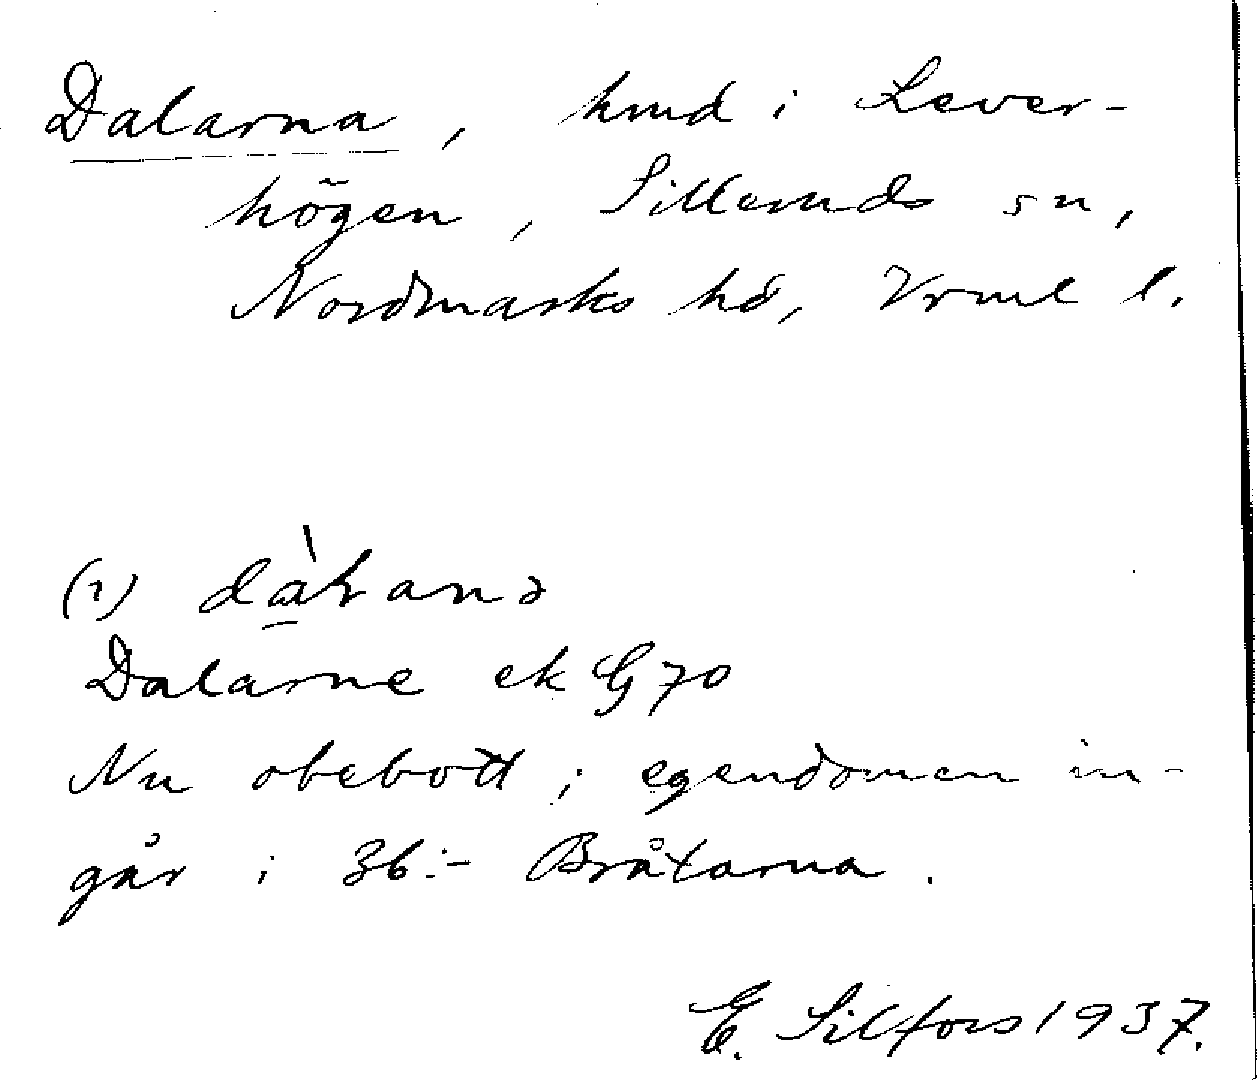 Dalarna, hmd i Lever-
högen, Silleruds sn,
Nordmarks hd, Vrml l.
(1) dàƚanə
Dalarne ek G 70
Nu obebott; egendomen in-
går i 36:- Bråtarna.
E. Silfors 1937.